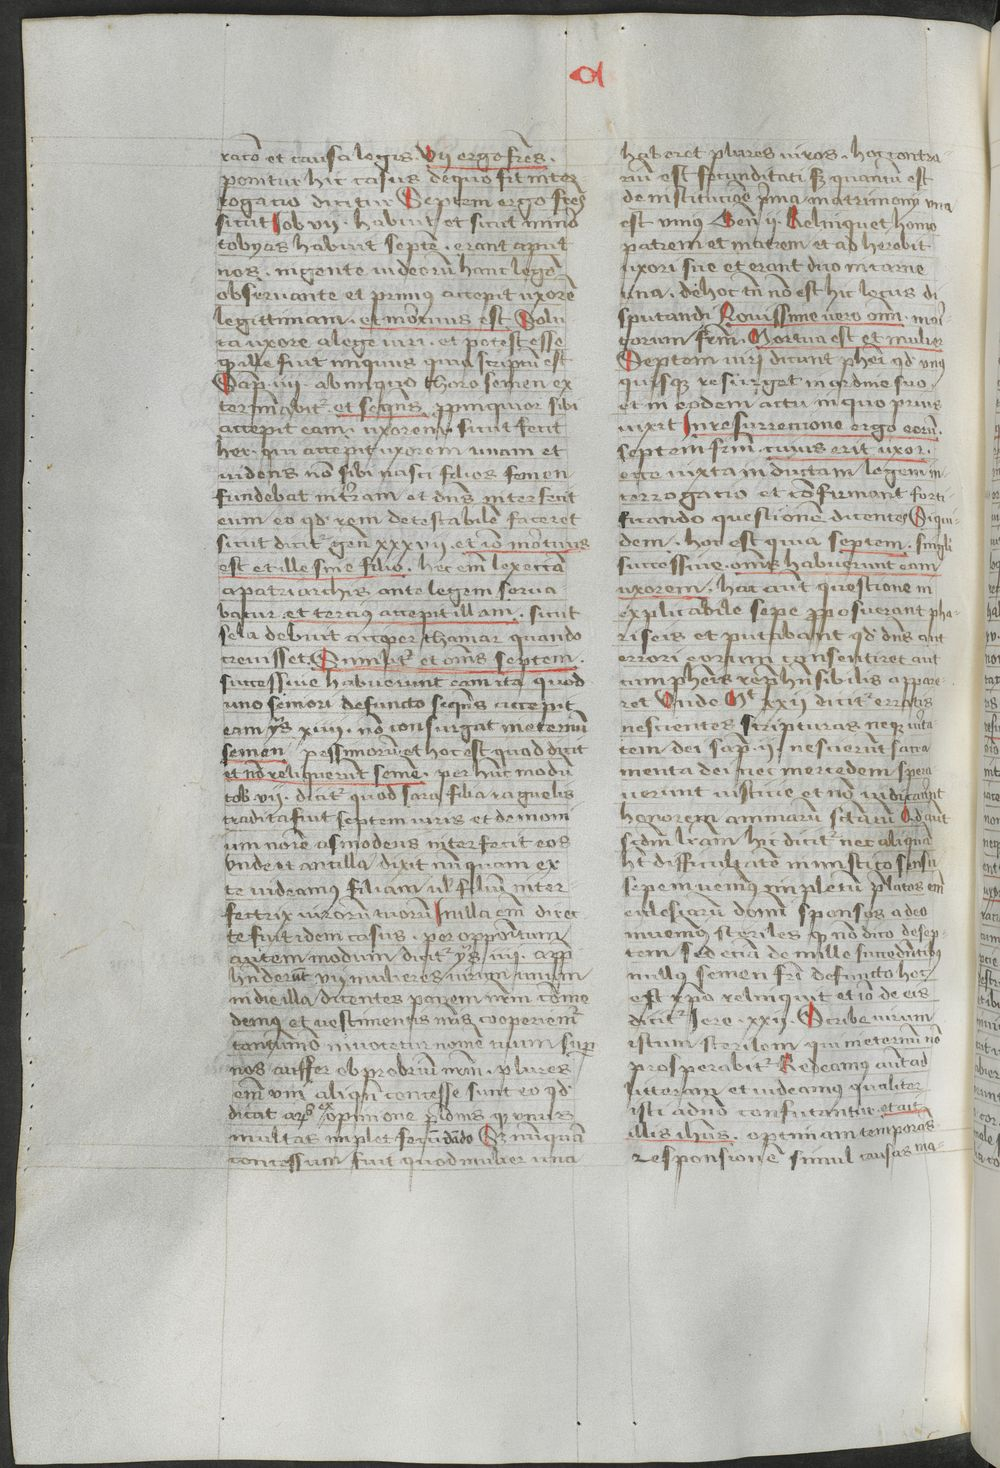 racō et causa legis. Vii ergo fr̄es.
ponitur hic casus de quo fit inter
rogatio dicitur Septem ergo fr̄es
sicut Iob vii. habuit et sicut minō
tobyas habuit septē. erant aput
nos. in gente iudeorū hanc legē
observante et primus accepit uxorē
legittimam. et mōrtuus est Solu
ta uxore a lege viri. et potest esse
qƥ ille fuit iniquus quia scriptū est
Sap̄. iiii. ab iniquo thoro semen ex
terminabit᷑. et sequēs ꝓpinquior sibi
accepit eam. uxorem. sicut fecit
her. qui accepit uxorem unam et
videns nō sibi nasci filios semen
fundebat in t̄ram et dn̄s interfecit
eum eo qd᷑ rem detestabilē faceret
sicut dicit᷑ gen̄ xxxvii. et iō mōrtuus
est et ille sine filio. hec em̄ lex etiā
a patriarchis ante legem serva
batur et tercius accepit illam. sicut
sela debuit acciper thamar quando
crevisset. Similit᷑ et om̄s septem.
successive habuerunt eam ita quod
uno semori defuncto sequēs accepit
eam ys̄ xiiii. nō consurgat in eternū
semen pessimorū et hoc est quod dicit
et nō reliquerūt semē. per hūc modū
tob. vii. dicit᷑ quod sara filia raguelis
tradita fuit septem viris et demoni
um nōie asmodeus interfecit eos
vnde et ancilla dixit nūquam ex
te videamus filiam ul᷑ filiū inter
fectrix virorū tuorū In illa em̄ direc
te fuit idem casus. per oppoītum
autem modum dicit᷑ ys̄ iiii. app̄
hn̄derūt vii mulieres virum unum
in die illa dicentes panem nr̄m cōme
demus et vestimentis nr̄is cooperiem᷑
tantūmō invocetur nomē tuum sup̄
nos auffer obprobriū nr̄m. plures
em̄ vni aliqn̄ concesse sunt eo qd᷑
dicat
multas implet fecūdādo Sꝫ nūquā
concessum fuit quod mulier una
haberet plures viros. hoc contra
rium est fecunditati sꝫ quantū est
de institucione p̄ma matrimonij una
est unius Gen̄ ii. Relinquet homo
patrem et matrem et ad herebit
uxori sue et erunt duo in carne
una. de hoc tn̄ nō est hic locus di
sputandi Novissime vero om̄. mōr
tuorum fr̄m. Mortua est et mulier
Septem viri dicunt phēi qd᷑ vnus
quisqꝫ resurget in ordine suo.
et in eodem actu in quo prius
vixit In resurrectione ergo eorū.
septem fr̄m. cuius erit uxor.
ecce iuxta inductam legem in
terrogacio et cōfirmant forti
ficando questionē dicentes Siqui
dem. hoc est quia septem. singl᷑i
successive. om̄s habuerunt eam
uxorem. hac aut̄ questione in
explicabile sepe ꝓposuerant pha
riseis et putabant qd᷑ dn̄s aut
errori eorum consentiret aut
cum pheīs reph̄nsibilis appare
ret Unde Mt xxii dicit᷑ erratis
nescientes scripturas neqꝫ v̄tu
tem dei sap̄. ij. nescierūt sacra
menta dei nec mercedem spera
verunt iusticie et nō iudicavūt
honorem animarū sctarū Qd᷑ aūt
scdm̄ lr̄am hic dicit᷑ nec aliquā
ht̄ difficultatē in mistico sensu
sepe invenim̄us impletū p̄latos em̄
ecclesiarū domi sponsos adeo
invenimus steriles qƥ nō dico de sep
tem sed etiā de mille succedn̄tibus
nullus semen fr̄i defuncto hoc
est xp̄o relinquit et iō de eis
dicit᷑ Iere. xxii. Scribe virum
istum sterilem qui in eternū nō
prosperabit᷑ Redeamus aūt ad
litteram et videamus qualiter
isti a dn̄o confutantur. et ait
illis ih̄us. optimam temporās
responsionē simul causas ma